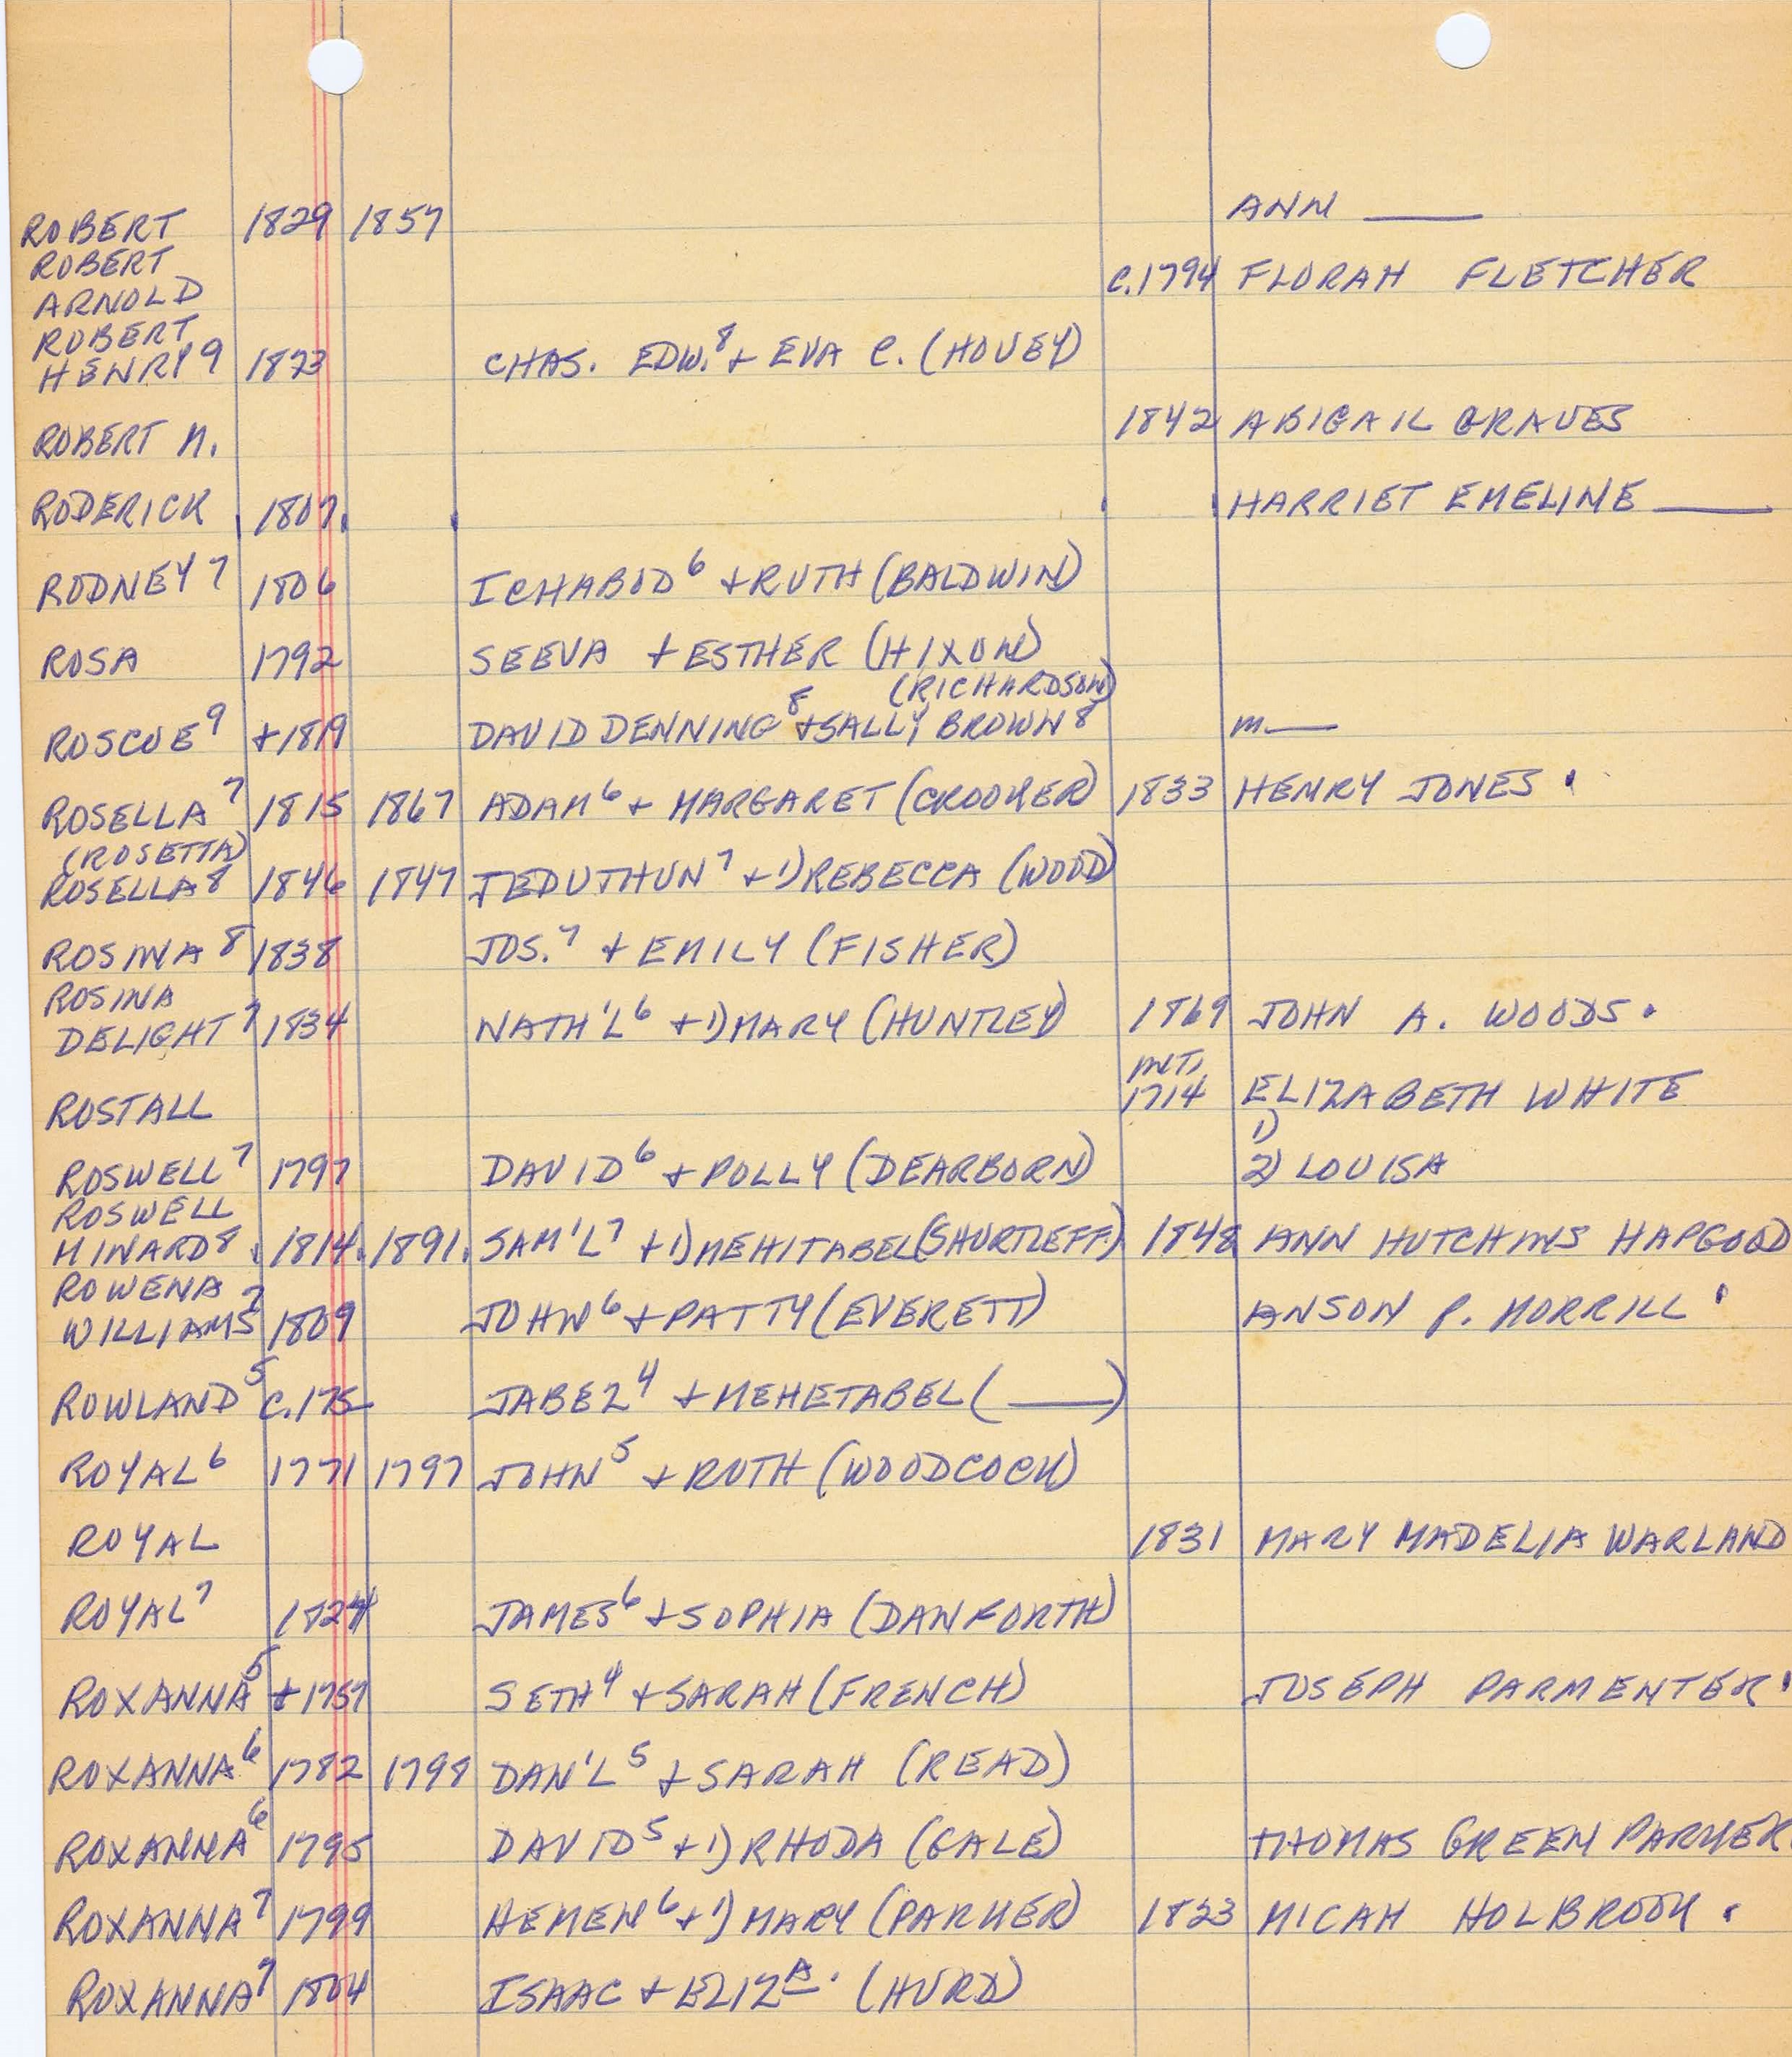 ROBERT 1829 1857 ANN ___
ROBERT
ARNOLD C.1794 FLORAH FLETCHER
ROBERT
HENRY 9 1873 CHAS. EDW.8 + EVA C. (HOVEY)
ROBERT N. 1842 ABIGAIL GRAVES
RODERICK 1807. HARRIET EMELINE ___
RODNEY 7 1806 ICHABOD 6 + RUTH (BALDWIN)
ROSA 1792 SEEVA + ESTHER (HIXON)
(RICHARDSON)
ROSCOE 9 +1819 DAVID DENNING 8 + SALLY BROWN 8 m ___
ROSELLA 7 1815 1867 ADAM 6 + MARGARET (CROOKER) 1833 HENRY JONES .
(ROSETTA)
ROSELLA 8 1846 1847 JEDUTHUN 7 + 1) REBECCA (WOOD)
ROSINA 8 1838 JOS. 7 + EMILY (FISHER)
ROSINA
DELIGHT 7 1834 NATH'L 6 + 1) MARY (HUNTLEY) 1869 JOHN A. WOODS .
INT.
ROSTALL 1714 ELIZABETH WHITE
1)
ROSWELL 7 1797 DAVID 6 + POLLY (DEARBORN) 2) LOUISA
ROSWELL
MINARD 8 . 1814. 1891. SAM'L 7 + 1) MEHITABEL (SHURTLEFF) 1848 ANN HUTCHINS HAPGOOD
ROWENA
WILLIAMS 7 1809 JOHN 6 + PATTY (EVERETT) ANSON P. MORRILL .
ROWLAND 5 C.175_ JABEZ 4 + MEHETABEL ( ___ )
ROYAL 6 1771 1797 JOHN 5 + RUTH (WOODCOCK)
ROYAL 1831 MARY MADELIA WARLAND
ROYAL 7 JAMES 6 + SOPHIA (DANFORTH)
ROXANNA 5 +1757 SETH 4 + SARAH (FRENCH) JOSEPH PARMENTER .
ROXANNA 6 1782 1798 DAN'L 5 + SARAH (READ)
ROXANNA 6 1795 DAVID 5 + 1) RHODA (GALE) THOMAS GREEN PARKER.
ROXANNA 7 1799 HEMEN 6 + 1) MARY (PARKER) 1823 MICAH HOLBROOK .
ROXANNA 7 1804 ISAAC + ELIZA. (HURD)